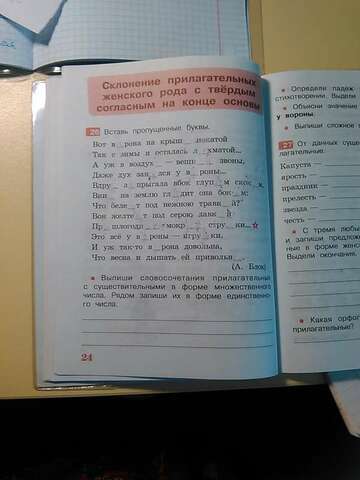 Склонение прилагательных
женского рода с твёрдым
согласным на конце основы
26 Вставь пропущенные буквы.
Вот в_рона на крыш_ покатой
Так с зимы и осталась л_хматой...
А уж в воздух_ — вешн__ звоны,
Даже дух зан_лся у в_роны...
Вдру_ з_прыгала вбок глуп_м скок_м,
Вни_ на землю гл_дит она бок_м:
Что беле_т под нежною трав_й?
Вон желте_т под серою лавк_й
Пр_шлогодн__ мокр__ стру_ки...
Это всё у в_роны — игру_ки,
И уж так-то в_рона довольна,
Что весна и дышать ей привольн_...
(А. Блок)
Выпиши словосочетания прилагательных
с существительными в форме множественного
числа. Рядом запиши их в форме единственно-
го числа.
24
Определи падеж
стихотворении. Выдели
Объясни значение
у вороны.
Выпиши сложное
27 От данных сущ
лагательные.
Капуста —
ярость —
праздник —
прелесть —
звезда —
честь —
С тремя любы
и запиши предлож
ные в форме жен
Выдели окончания.
Какая орфог
прилагательные?